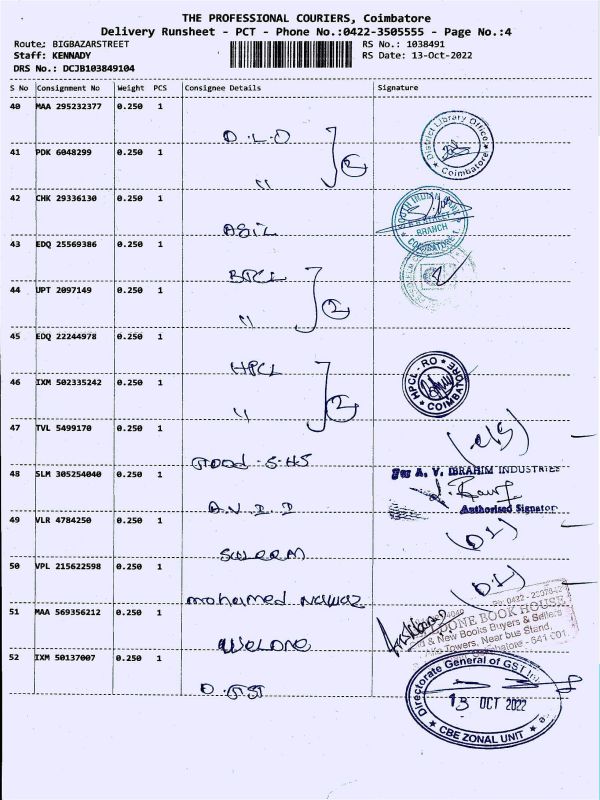 THE PROFESSIONAL COURIERS, Coimbatore
Delivery Runsheet - PCT - Phone No.:0422-3505555 - Page No.:4
Route: BIGBAZARSTREET
RS No.: 1038491
Staff: KENNADY
RS Date: 13-Oct-2022
DRS No.: DCJB103849104
S No Consignment No Weight PCS Consignee Details Signature
40 MAA 295232377 0.250 1
D.L.O
District Library Office
Coimbatore
41 PDK 6048299 0.250 1
"
42 CHK 29336130 0.250 1
BRANCH
43 EDQ 25569386 0.250 1
BPCL
44 UPT 2097149 0.250 1
"
45 EDQ 22244978 0.250 1
HPCL
HPCL - RO
COIMBATORE
46 IXM 502335242 0.250 1
"
47 TVL 5499170 0.250 1
48 SLM 305254040 0.250 1
A.V.I.I
For A. V. IBRAHIM INDUSTRIES
Authorised Signator
49 VLR 4784250 0.250 1
50 VPL 215622598 0.250 1
mohamed Nawaz
51 MAA 569356212 0.250 1
Welone
BOOK HOUSE
& New Books Buyers & Sellers
Towers, Near bus Stand,
641 001
52 IXM 50137007 0.250 1
D.GST
Directorate General of GST
13 OCT 2022
CBE ZONAL UNIT